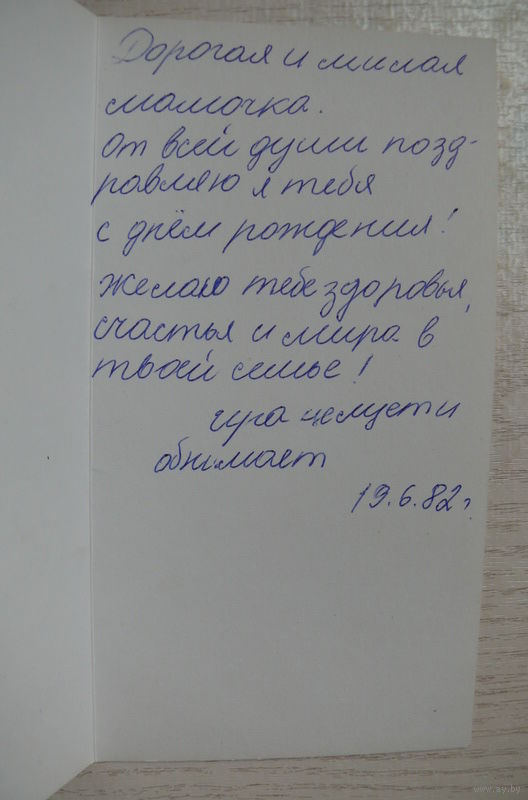 Дорогая и милая
мамочка.
от всей души позд-
равляю я тебя
с днём рождения!
желаю тебе здоровья,
счастья и мира в
твоей семье!
обнимает
19.6.82г.
www.ay.by